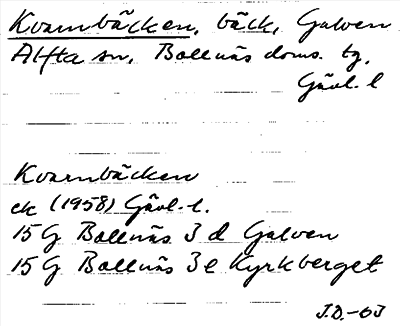 Kvarnbäcken, bäck, Galven
Alfta sn, Bollnäs doms. tg,
Gävl. l
Kvarnbäcken
ek (1958) Gävl. l.
15G Bollnäs 3 d Galven
15G Bollnäs 3e Kyrkberget
J.D.-63